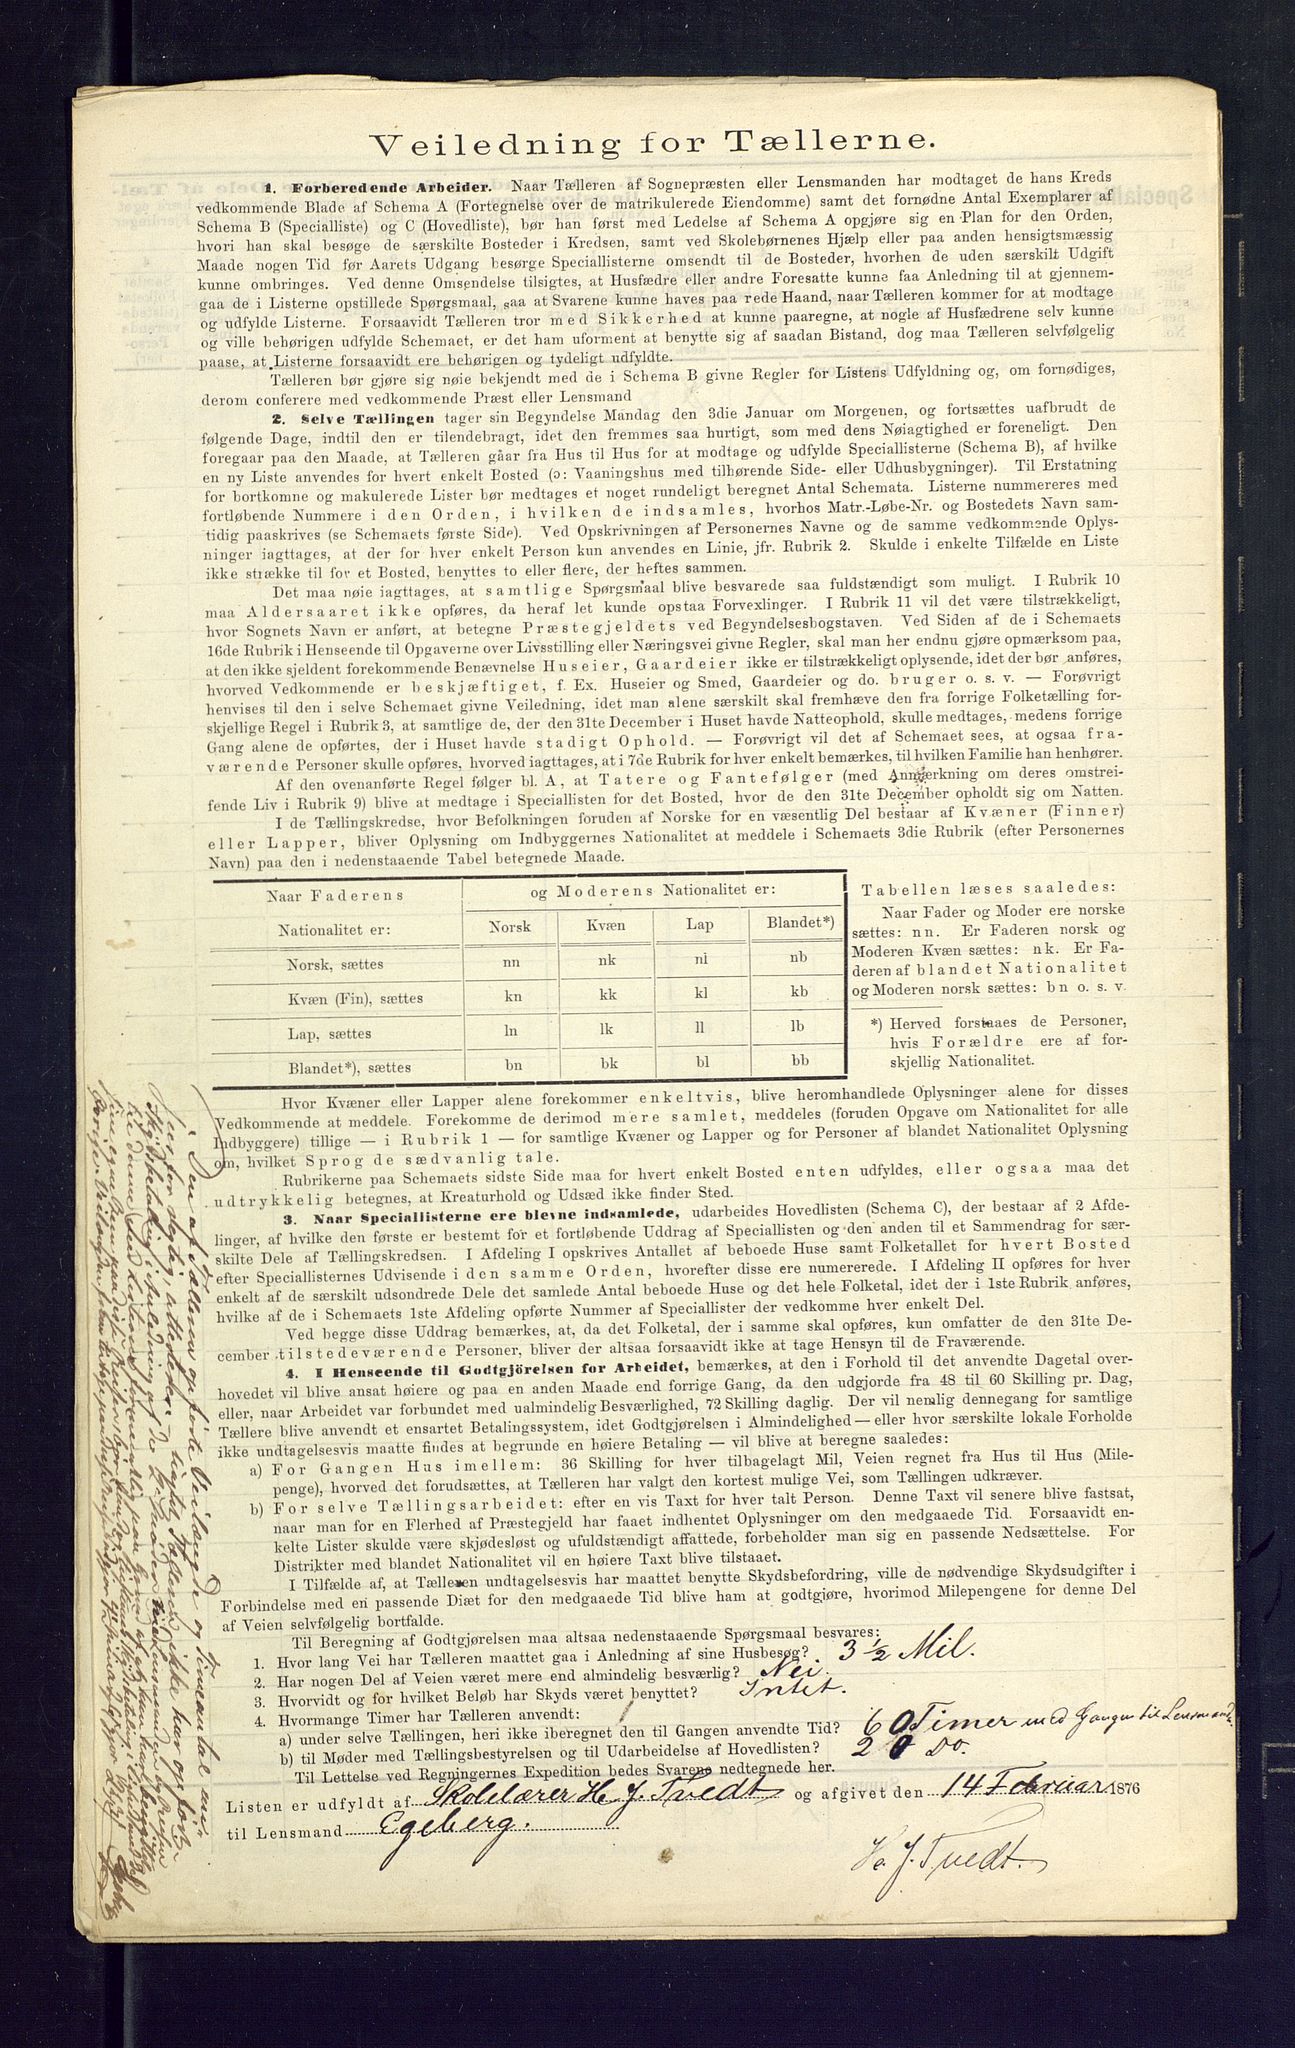 Veiledning for Tællerne.
1. Forberedende Arbeider. Naar Tælleren af Sognepræsten eller Lensmanden har modtaget de hans Kreds
vedkommende Blade af Schema A (Fortegnelse over de matrikulerede Eiendomme) samt det fornødne Antal Exemplarer af
Schema B (Specialliste) og C (Hovedliste), bør han først med Ledelse af Schema A opgjøre sig en Plan for den Orden,
hvori han skal besøge de særskilte Bosteder i Kredsen, samt ved Skolebørnenes Hjælp eller paa anden hensigtsmæssig
Maade nogen Tid før Aarets Udgang besørge Speciallisterne omsendt til de Bosteder, hvorhen de uden særskilt Udgift
kunne ombringes. Ved denne Omsendelse tilsigtes, at Husfædre eller andre Foresatte kunne faa Anledning til at gjennem-
gaa de i Listerne opstillede Spørgsmaal, saa at Svarene kunne haves paa rede Haand, naar Tælleren kommer for at modtage
og udfylde Listerne. Forsaavidt Tælleren tror med Sikkerhed at kunne paaregne, at nogle af Husfædrene selv kunne
og ville behørigen udfylde Schemaet, er det ham uforment at benytte sig af saadan Bistand, dog maa Tælleren selvfølgelig
paase, at Listerne forsaavidt ere behørigen og tydeligt udfyldte.
Tælleren bør gjøre sig nøie bekjendt med de i Schema B givne Regler for Listens Udfyldning og, om fornødiges,
derom conferere med vedkommende Præst eller Lensmand
2. Selve Tællingen tager sin Begyndelse Mandag den 3die Januar om Morgenen, og fortsættes uafbrudt de
følgende Dage, indtil den er tilendebragt, idet den fremmes saa hurtigt, som med dens Nøiagtighed er foreneligt. Den
foregaar paa den Maade, at Tælleren gåar fra Hus til Hus for at modtage og udfylde Speciallisterne (Schema B), af hvilke
en ny Liste anvendes for hvert enkelt Bosted (ɔ: Vaaningshus med tilhørende Side- eller Udhusbygninger). Til Erstatning
for bortkomne og makulerede Lister bør medtages et noget rundeligt beregnet Antal Schemata. Listerne nummereres med
fortløbende Nummere i den Orden, i hvilken de indsamles, hvorhos Matr.-Løbe-Nr. og Bostedets Navn sam-
tidig paaskrives (se Schemaets første Side). Ved Opskrivningen af Personernes Navne og de samme vedkommende Oplys-
ninger iagttages, at der for hver enkelt Person kun anvendes en Linie, jfr. Rubrik 2. Skulde i enkelte Tilfælde en Liste
ikke strække til for et Bosted, benyttes to eller flere, der heftes sammen.
Det maa nøie iagttages, at samtlige Spørgsmaal blive besvarede saa fuldstændigt som muligt. I Rubrik 10
maa Aldersaaret ikke opføres, da heraf let kunde opstaa Forvexlinger. I Rubrik 11 vil det være tilstrækkeligt,
hvor Sognets Navn er anført, at betegne Præstegjeldets ved Begyndelsesbogstaven. Ved Siden af de i Schemaets
16de Rubrik i Henseende til Opgaverne over Livsstilling eller Næringsvei givne Regler, skal man her endnu gjøre opmærksom paa,
at den ikke sjeldent forekommende Benævnelse Huseier, Gaardeier ikke er tilstrækkeligt oplysende, idet der bør anføres,
hvorved Vedkommende er beskjæftiget, f. Ex. Huseier og Smed, Gaardeier og do. bruger o. s. v. — Forøvrigt
henvises til den i selve Schemaet givne Veiledning, idet man alene særskilt skal fremhæve den fra forrige Folketælling for-
skjellige Regel i Rubrik 3, at samtlige de, der den 31te December i Huset havde Natteophold, skulle medtages, medens forrige
Gang alene de opførtes, der i Huset havde stadigt Ophold. — Forøvrigt vil det af Schemaet sees, at ogsaa fra-
værende Personer skulle opføres, hvorved iagttages, at i 7de Rubrik for hver enkelt bemærkes, til hvilken Familie han henhører.
Af den ovenanførte Regel følger bl. A, at Tatere og Fantefølger (med Anmærkning om deres omstrei-
fende Liv i Rubrik 9) blive at medtage i Speciallisten for det Bosted, hvor de den 31te December opholdt sig om Natten.
I de Tællingskredse, hvor Befolkningen foruden af Norske for en væsentlig Del bestaar af Kvæner (Finner)
eller Lapper, bliver Oplysning om Indbyggernes Nationalitet at meddele i Schemaets 3die Rubrik (efter Personernes
Navn) paa den i nedenstaaende Tabel betegnede Maade.
Naar Faderens | og Moderens Nationalitet er:
Nationalitet er: | Norsk | Kvæn | Lap | Blandet*)
Norsk, sættes | nn | nk | nl | nb
Kvæn (Fin), sættes | kn | kk | kl | kb
Lap, sættes | ln | lk | ll | lb
Blandet*), sættes | bn | bk | bl | bb
Tabellen læses saaledes:
Naar Fader og Moder ere norske
sættes: nn. Er Faderen norsk og
Moderen Kvæn sættes: nk. Er Fa-
deren af blandet Nationalitet
og Moderen norsk sættes: bn o. s. v.
*) Herved forstaaes de Personer,
hvis Forældre ere af for-
skjellig Nationalitet.
Hvor Kvæner eller Lapper alene forekommer enkeltvis, blive heromhandlede Oplysninger alene for disses
Vedkommende at meddele. Forekomme de derimod mere samlet, meddeles (foruden Opgave om Nationalitet for alle
Indbyggere) tillige — i Rubrik 1 — for samtlige Kvæner og Lapper og for Personer af blandet Nationalitet Oplysning
om, hvilket Sprog de sædvanlig tale.
Rubrikerne paa Schemaets sidste Side maa for hvert enkelt Bosted enten udfyldes, eller ogsaa maa det
udtrykkelig betegnes, at Kreaturhold og Udsæd ikke finder Sted.
3. Naar Speciallisterne ere blevne indsamlede, udarbeides Hovedlisten (Schema C), der bestaar af 2 Afde-
linger, af hvilke den første er bestemt for et fortløbende Uddrag af Speciallisten og den anden til et Sammendrag for sær-
skilte Dele af Tællingskredsen. I Afdeling I opskrives Antallet af beboede Huse samt Folketallet for hvert Bosted
efter Speciallisternes Udvisende i den samme Orden, hvorefter disse ere numererede. I Afdeling II opføres for hver
enkelt af de særskilt udsondrede Dele det samlede Antal beboede Huse og det hele Folketal, idet der i 1ste Rubrik anføres,
hvilke af de i Schemaets 1ste Afdeling opførte Nummer af Speciallister der vedkomme hver enkelt Del.
Ved begge disse Uddrag bemærkes, at, da det Folketal, der i samme skal opføres, kun omfatter de den 31te De-
cember tilstedeværende Personer, bliver der altsaa forsaavidt ikke at tage Hensyn til de Fraværende.
4. I Henseende til Godtgjörelsen for Arbeidet, bemærkes, at den i Forhold til det anvendte Dagetal over-
hovedet vil blive ansat høiere og paa en anden Maade end forrige Gang, da den udgjorde fra 48 til 60 Skilling pr. Dag,
eller, naar Arbeidet var forbundet med ualmindelig Besværlighed, 72 Skilling daglig. Der vil nemlig dennegang for samtlige
Tællere blive anvendt et ensartet Betalingssystem, idet Godtgjørelsen i Almindelighed — eller hvor særskilte lokale Forholde
ikke undtagelsesvis maatte findes at begrunde en høiere Betaling — vil blive at beregne saaledes:
a) For Gangen Hus imellem: 36 Skilling for hver tilbagelagt Mil, Veien regnet fra Hus til Hus (Mile-
penge), hvorved det forudsættes, at Tælleren har valgt den kortest mulige Vei, som Tællingen udkræver.
b) For selve Tællingsarbeidet: efter en vis Taxt for hver talt Person. Denne Taxt vil senere blive fastsat,
naar man for en Flerhed af Præstegjeld har faaet indhentet Oplysninger om den medgaaede Tid. Forsaavidt en-
kelte Lister skulde være skjødesløst og ufuldstændigt affattede, forbeholder man sig en passende Nedsættelse. For
Distrikter med blandet Nationalitet vil en høiere Taxt blive tilstaaet.
I Tilfælde af, at Tælleren undtagelsesvis har maattet benytte Skydsbefordring, ville de nødvendige Skydsudgifter i
Forbindelse med en passende Diæt for den medgaaede Tid blive ham at godtgjøre, hvorimod Milepengene for denne Del
af Veien selvfølgelig bortfalde.
Til Beregning af Godtgjørelsen maa altsaa nedenstaaende Spørgsmaal besvares:
1. Hvor lang Vei har Tælleren maattet gaa i Anledning af sine Husbesøg? 3 ½ Mil.
2. Har nogen Del af Veien været mere end almindelig besværlig? Nei.
3. Hvorvidt og for hvilket Beløb har Skyds været benyttet? Intet.
4. Hvormange Timer har Tælleren anvendt:
a) under selve Tællingen, heri ikke iberegnet den til Gangen anvendte Tid? 60 Timer med Gangen til Lensmanden
b) til Møder med Tællingsbestyrelsen og til Udarbeidelse af Hovedlisten? 20 Do.
Til Lettelse ved Regningernes Expedition bedes Svarene nedtegnede her.
Listen er udfyldt af Skolelærer H. J. Tvedt og afgivet den 14 Februar 1876
til Lensmand Egeberg.
H. J. Tvedt.